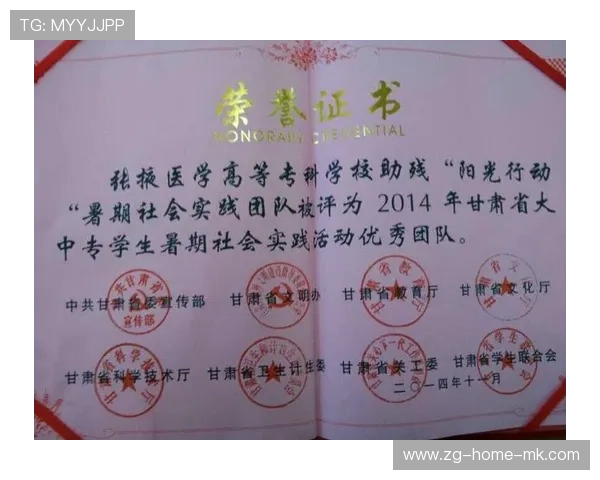 TG: MYYJJPP
荣誉证书
HONORARY CREDENTIAL
张掖医学高等专科学校助残“阳光行动
“暑期社会实践团队被评为 2014 年甘肃省大
中专学生暑期社会实践活动优秀团队。
中共甘肃省委宣传部 甘肃省文明办 甘肃省教育厅 甘肃省文化厅
甘肃省科学技术厅 甘肃省卫生计生委 甘肃省关工委 甘肃省学生联合会
二〇一四年十一月
www.zg-home-mk.com